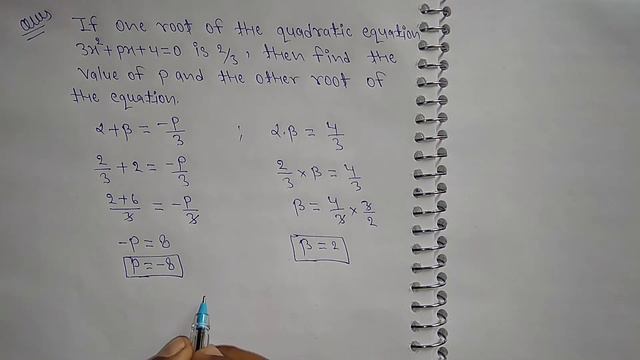 Ques If one root of the quadratic equation
3x²+px+4=0 is 2/3, then find the
value of p and the other root of
the equation.
α+β = -p/3 ; α.β = 4/3
2/3 + 2 = -p/3 2/3 × β = 4/3
2+6/3 = -p/3 β = 4/3 × 3/2
-p = 8 β = 2
p = -8